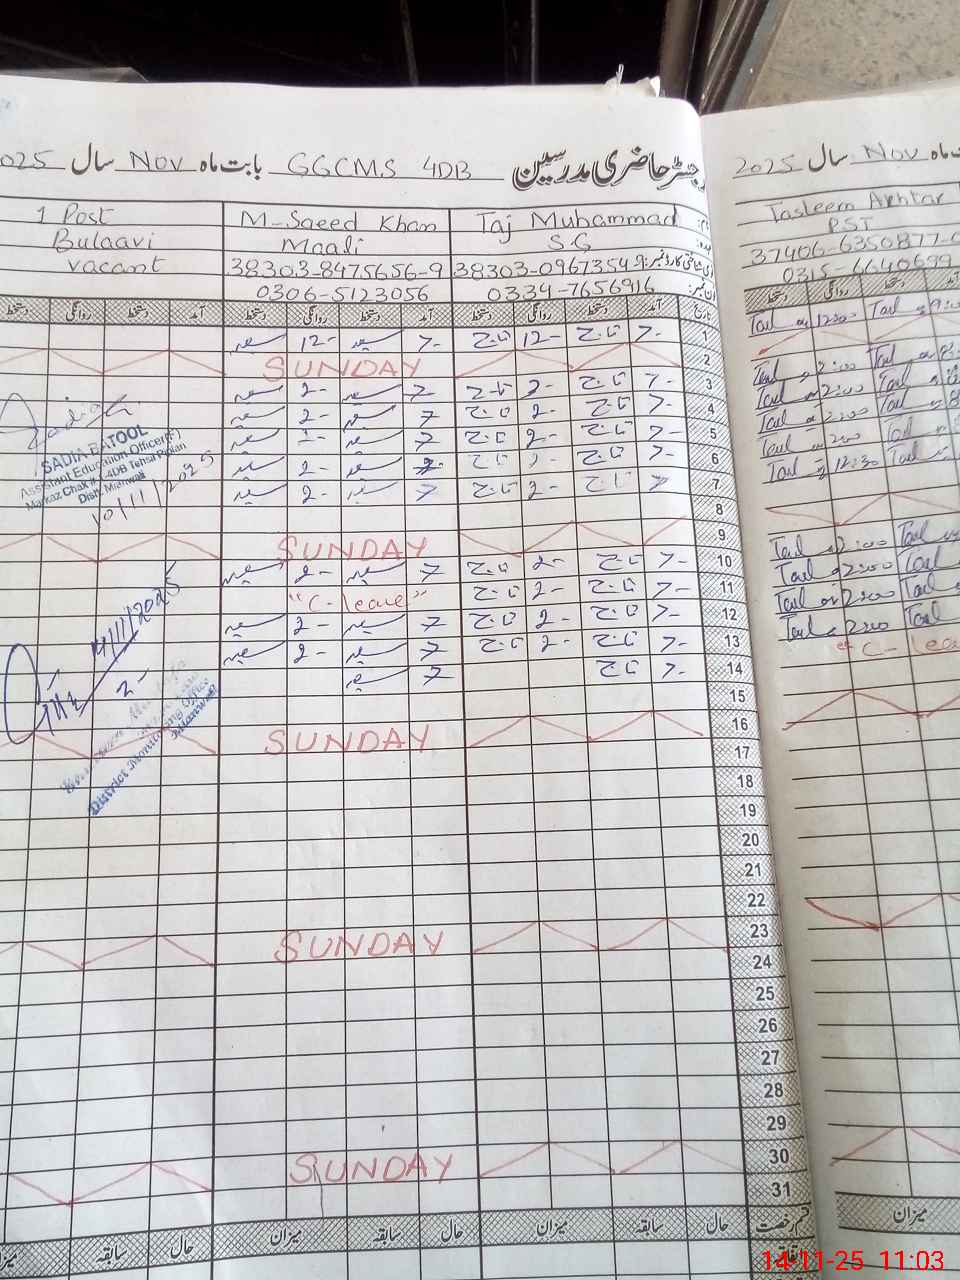 رجسٹر حاضری مدرسین GGCMS 4DB بابت ماہ Nov سال 2025
Taj Muhammad
S.G
38303-0967354-9
0334-7656916
M-Saeed Khan
Maali
38303-8475656-9
0306-5123056
1 Post
Bulaavi
vacant
تاریخ آمد دستخط روانگی دستخط آمد دستخط روانگی دستخط آمد دستخط روانگی دستخط
1 7- تاج 12- تاج 7- سعید 12- سعید
2 SUNDAY
3 7- تاج 2- تاج 7 سعید 2- سعید
4 7- تاج 2- تاج 7 سعید 2- سعید
5 7- تاج 2- تاج 7 سعید سعید
6 7- تاج 2- تاج سعید 2- سعید
7 7 تاج 2- تاج 7 سعید 2- سعید
8
9 SUNDAY
10 7- تاج 2- تاج 7 سعید 2- سعید
11 7- تاج 2- تاج "C-leave"
12 7- تاج 2- تاج 7 سعید 2- سعید
13 7- تاج 2- تاج 7 سعید 2- سعید
14 7- تاج 7 سعید
15
16 SUNDAY
17
18
19
20
21
22
23 SUNDAY
24
25
26
27
28
29
30 SUNDAY
31
قسم رخصت حال سابقہ میزان حال سابقہ میزان حال سابقہ میزان
اتفاقیہ
SADIA BATOOL
Assistant Education Officer(F)
Markaz Chak # 4-DB Tehsil Piplan
Distt. Mianwali
10/11/2025
14/11/2025
2-
District Monitoring Office
Mianwali
ماہ Nov سال 2025
Tasleem Akhtar
PST
37406-6350877-0
0315-6640699
دستخط روانگی دستخط
12:00
2:00
2:00
2:00
2:00
12:30
2:00
2:00
2:00
2:00
"C-lea
میزان
14-11-25 11:03